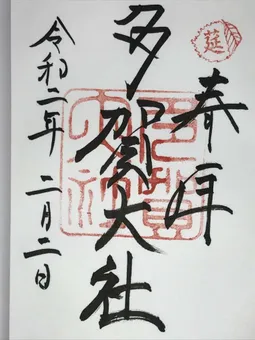 奉拝
莚
多賀大社
令和二年 二月二日